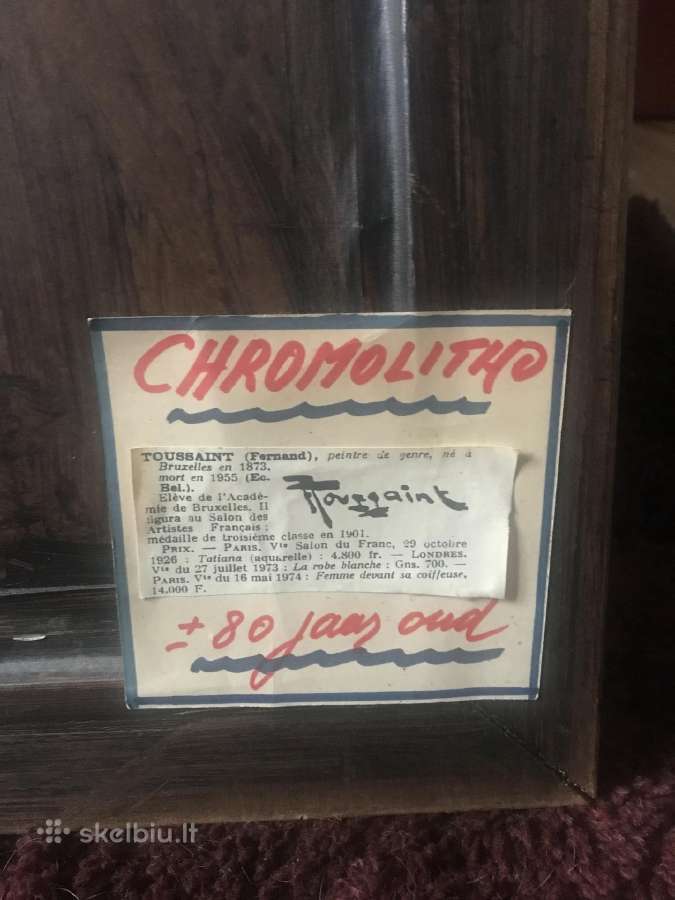 CHROMOLITHO
TOUSSAINT (Fernand), peintre de genre, né à
Bruxelles en 1873.
mort en 1955 (Ec.
Bel.).
Elève de l'Acadé-
mie de Bruxelles. Il
figura au Salon des
Artistes Français ;
médaille de troisième classe en 1901.
Toussaint
PRIX. — PARIS. Vte Salon du Franc, 29 octobre
1926 : Tatiana (aquarelle) : 4.800 fr. — LONDRES.
Vte du 27 juillet 1973 : La robe blanche : Gns. 700. —
PARIS. Vte du 16 mai 1974 : Femme devant sa coiffeuse,
14.000 F.
± 80 jaar oud
skelbiu.lt